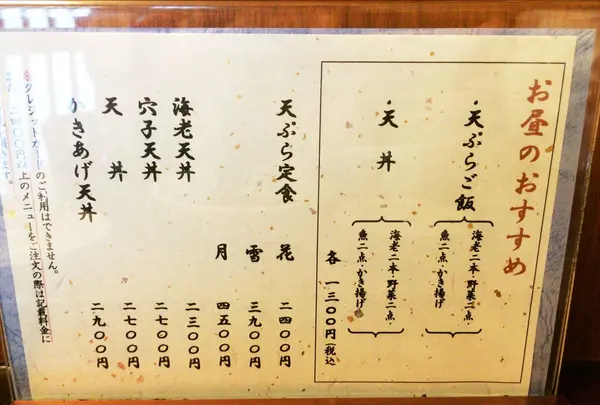 お昼のおすすめ
・天ぷらご飯
海老二本・野菜二点・
魚二点・かき揚げ
・天丼
海老二本・野菜二点・
魚二点・かき揚げ
各 一三〇〇円(税込
天ぷら定食 花 二四〇〇円
雪 三九〇〇円
月 四五〇〇円
海老天丼 二三〇〇円
穴子天丼 二七〇〇円
天丼 二七〇〇円
かきあげ天丼 二九〇〇円
※クレジットカードのご利用はできません。
二四〇〇円以上のメニューをご注文の際は記載料金に
頂きます。